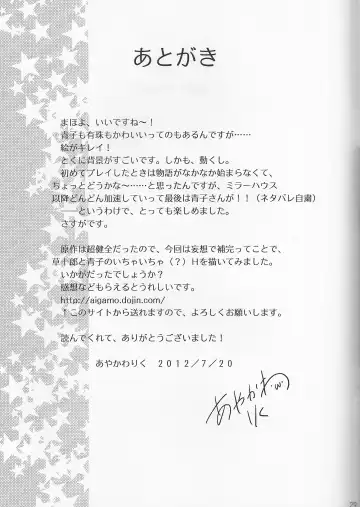 あとがき
まほよ、いいですね~!
青子も有珠もかわいいってのもあるんですが……
絵がキレイ!
とくに背景がすごいです。しかも、動くし。
初めてプレイしたときは物語がなかなか始まらなくて、
ちょっとどうかな~……と思ったんですが、ミラーハウス
以降どんどん加速していって最後は青子さんが!!(ネタバレ自粛)
――というわけで、とっても楽しめました。
さすがです。
原作は超健全だったので、今回は妄想で補完ってことで、
草十郎と青子のいちゃいちゃ(?)Hを描いてみました。
いかがだったでしょうか?
感想などもらえるとうれしいです。
http://aigamo.dojin.com/
↑このサイトから送れますので、よろしくお願いします。
読んでくれて、ありがとうございました!
あやかわりく 2012/7/20
あやかわ
りく
29